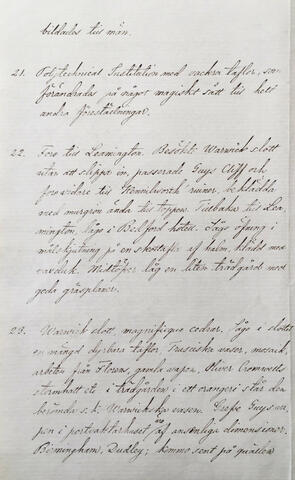 bildades till män.
21. Polytechnical Institution med vackra taflor, som
förändrades på något magiskt sätt till helt
andra föreställningar.
22. Foro till Leamington. Besökte Warwick slott
utan att slippa in, passerade Guys Cliff och
foro vidare till Kennilworth ruiner, beklädda
med murgrön ända till toppen. Tillbaka till Lea-
mington, lågo i Bedford hotell. Sågo öfning i
målskjutning på en skottafla af halm, klädd med
vaxduk. Midtöfver låg en liten trädgård med
goda gräsplaner.
23. Warwick slott, magnifique cedrar. Sågo i slottet
en mängd dyrbara taflor, Trusciska vaser, mosaik,
arbeten från Florens, gamla vapen. Oliver Cromwells
stormhatt etc. i trädgården i ett orangeri står den
berömda s.k. Warwickska vasen. Grefve Guys va-
pen i portvaktarhuset äro af ansenliga dimensioner.
Birmingham, Dudley; kommo sent på qvällen